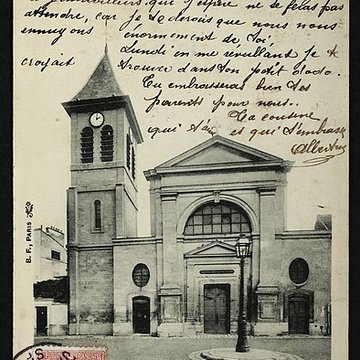 que j'espère ne se fera pas
attendre, car je te dirais que nous nous
ennuyons enormement de toi
Lundi en me réveillant je te
croyait trouver dans ton petit dodo.
Tu embrasseras bien tes
parents pour nous..
Ta cousine
qui t'aime et qui t'embrasse
B. F., PARIS